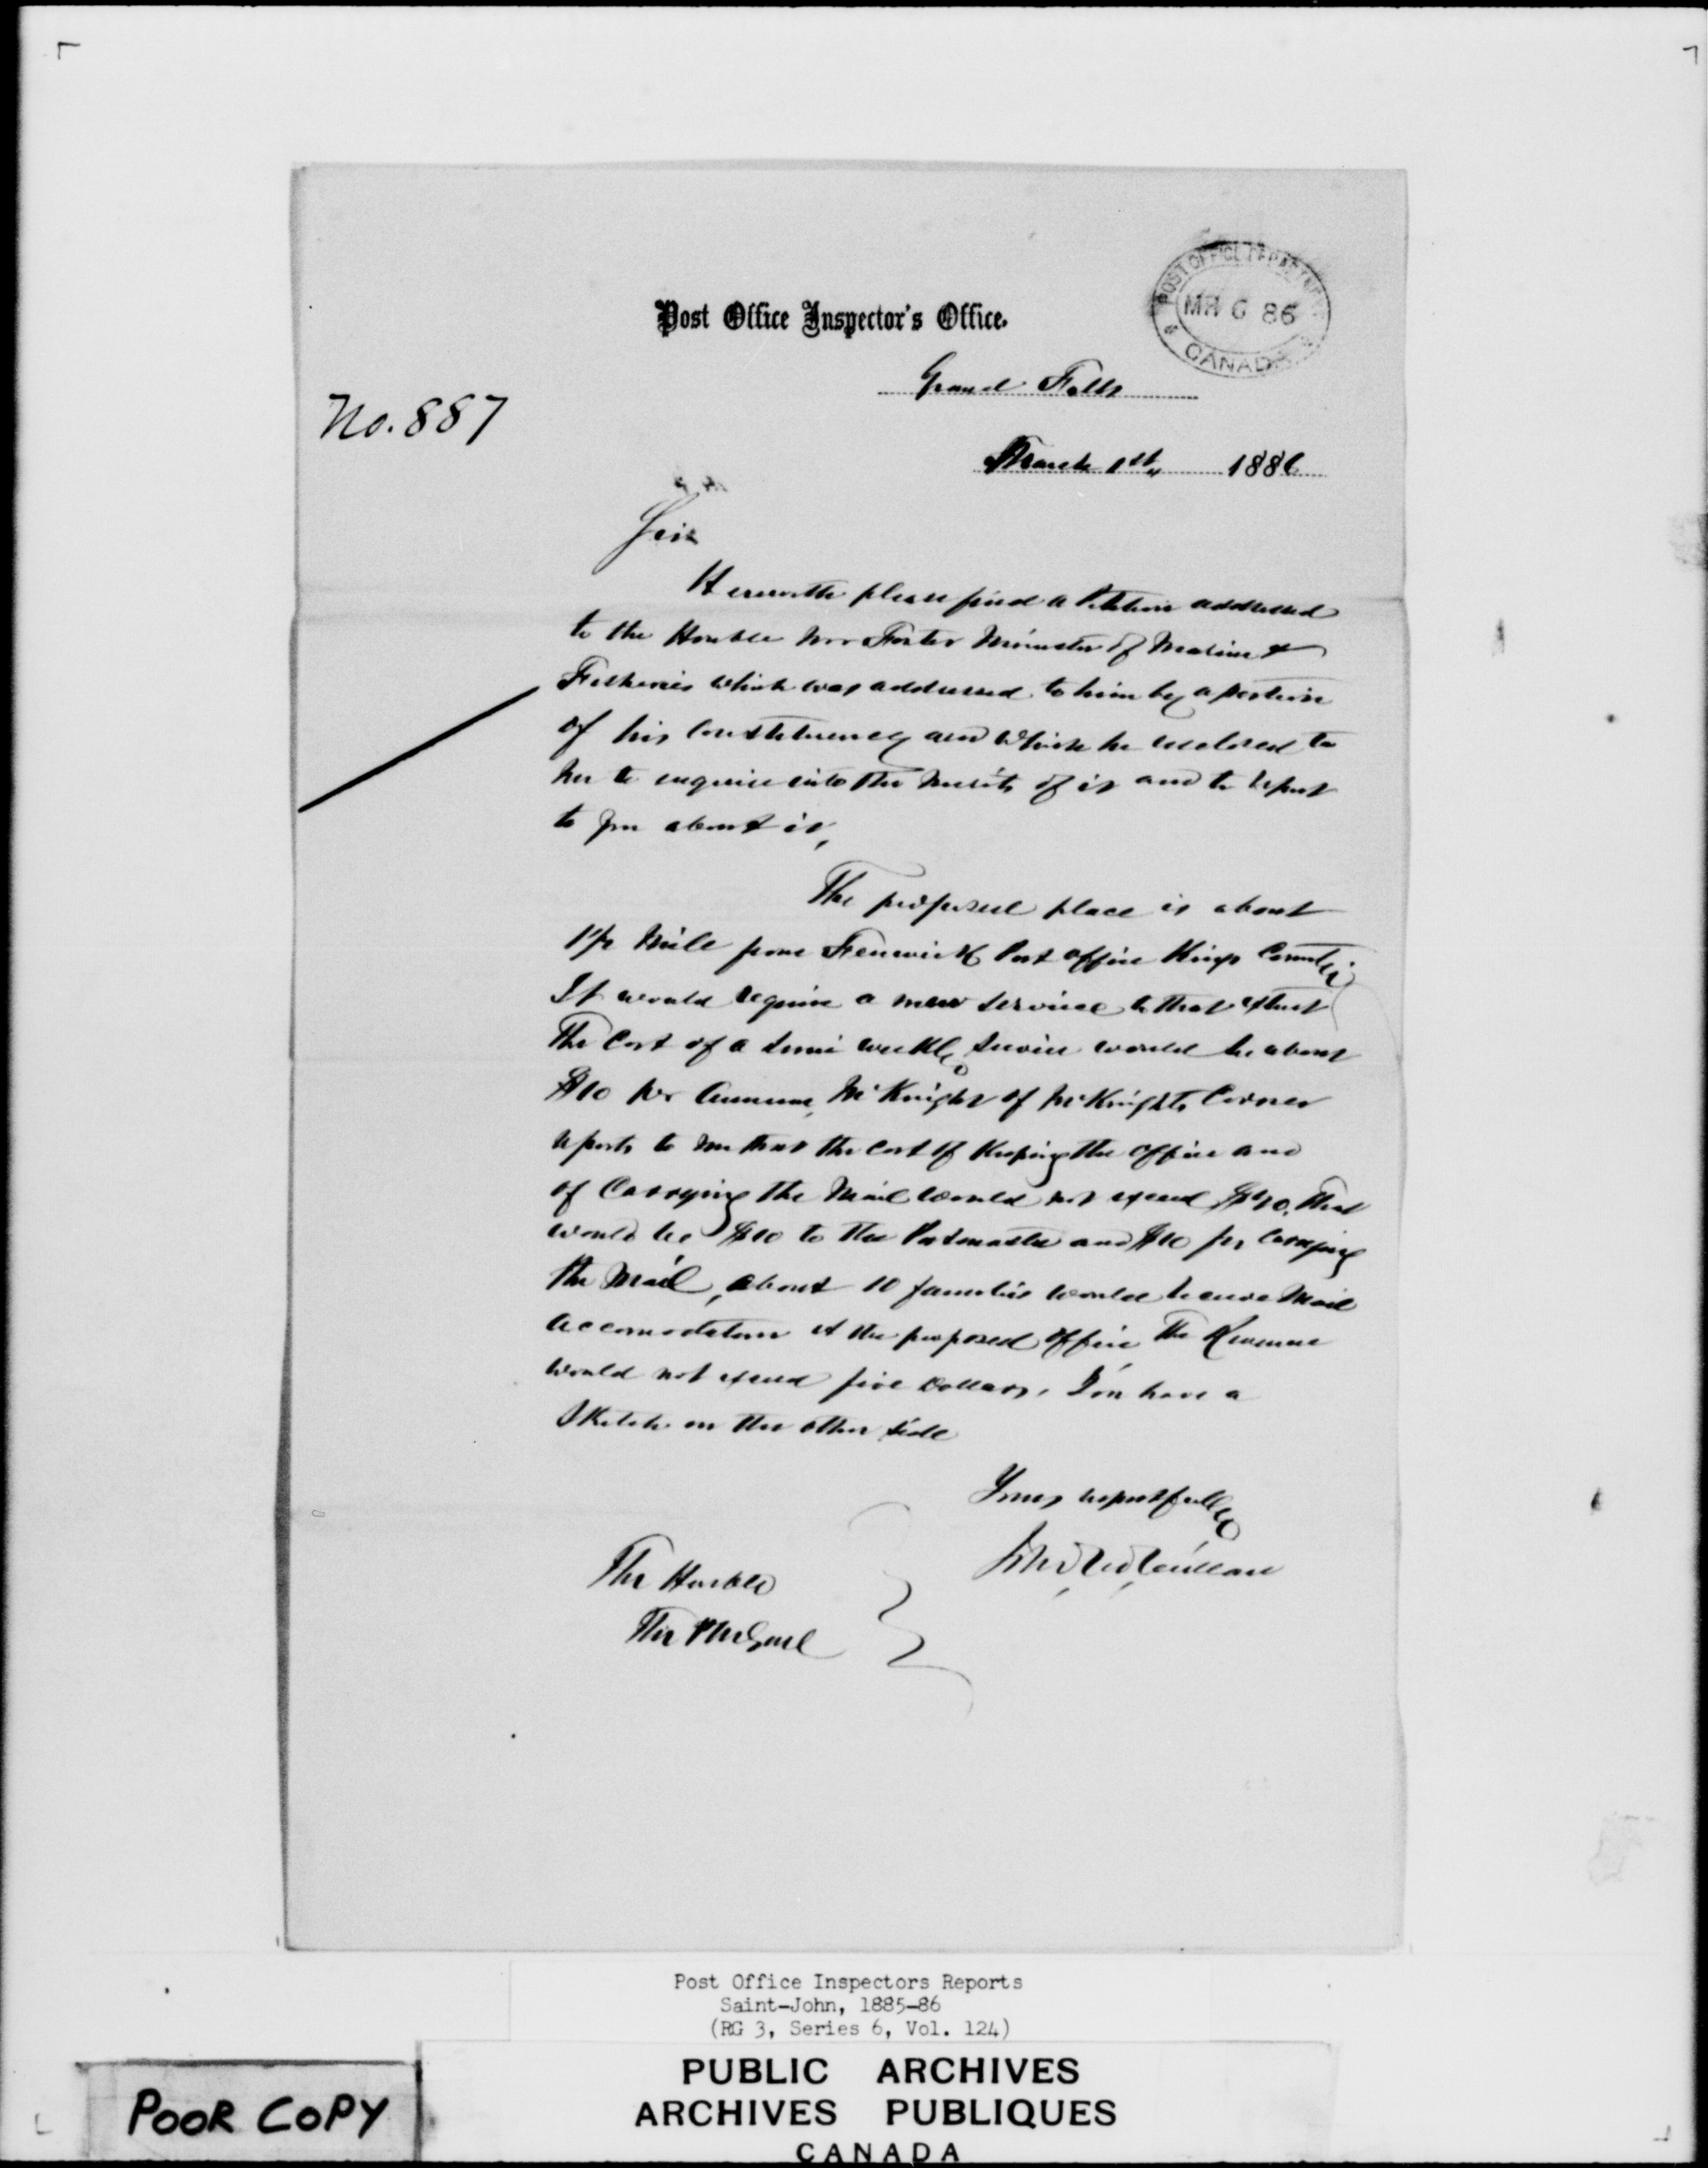 POST OFFICE DEPARTMENT
MR 6 86
CANADA
Post Office Inspector's Office.
Grand Falls
No. 887
March 1st 1886
Sir
Herewith please find a Petition addressed
to the Honble Mr Foster Minister of Marine &
Fisheries which was addressed to him by a portion
of his Constituency and which he enclosed to
me to enquire into the merits of it and to report
to you about it,
The proposed place is about
Mile from Fenwick Post office Kings County
It would require a new service to that extent
The Cost of a semi weekly service would be about
$10 per Annum, McKnight of McKnights Corner
reports to me that the cost of keeping the office and
of Carrying the Mail would not exceed that
would be $10 to the Postmaster and $10 for Carrying
the Mail, about 10 families would receive Mail
accomodation at the proposed office The Revenue
would not exceed five Dollars, You have a
Sketch on the other side
Yours respectfully
The Honble
The PMGenl
Post Office Inspectors Reports
Saint-John, 1885-86
(RG 3, Series 6, Vol. 124)
PUBLIC ARCHIVES
ARCHIVES PUBLIQUES
CANADA
POOR COPY